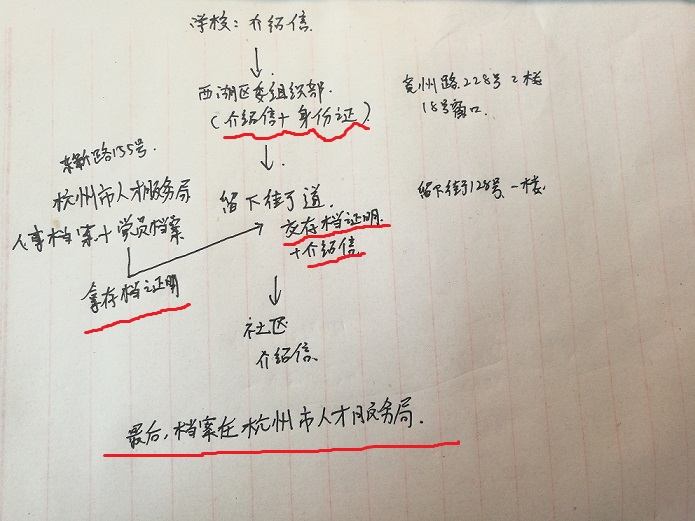 学校：介绍信
西湖区委组织部.
(介绍信+身份证)
228号2楼
18号窗口.
东新路155号.
杭州市人才服务局
人事档案+党员档案
拿存档证明
留下街道.
交存档证明
+介绍信.
留下街128号一楼
社区
介绍信.
最后,档案在杭州市人才服务局.